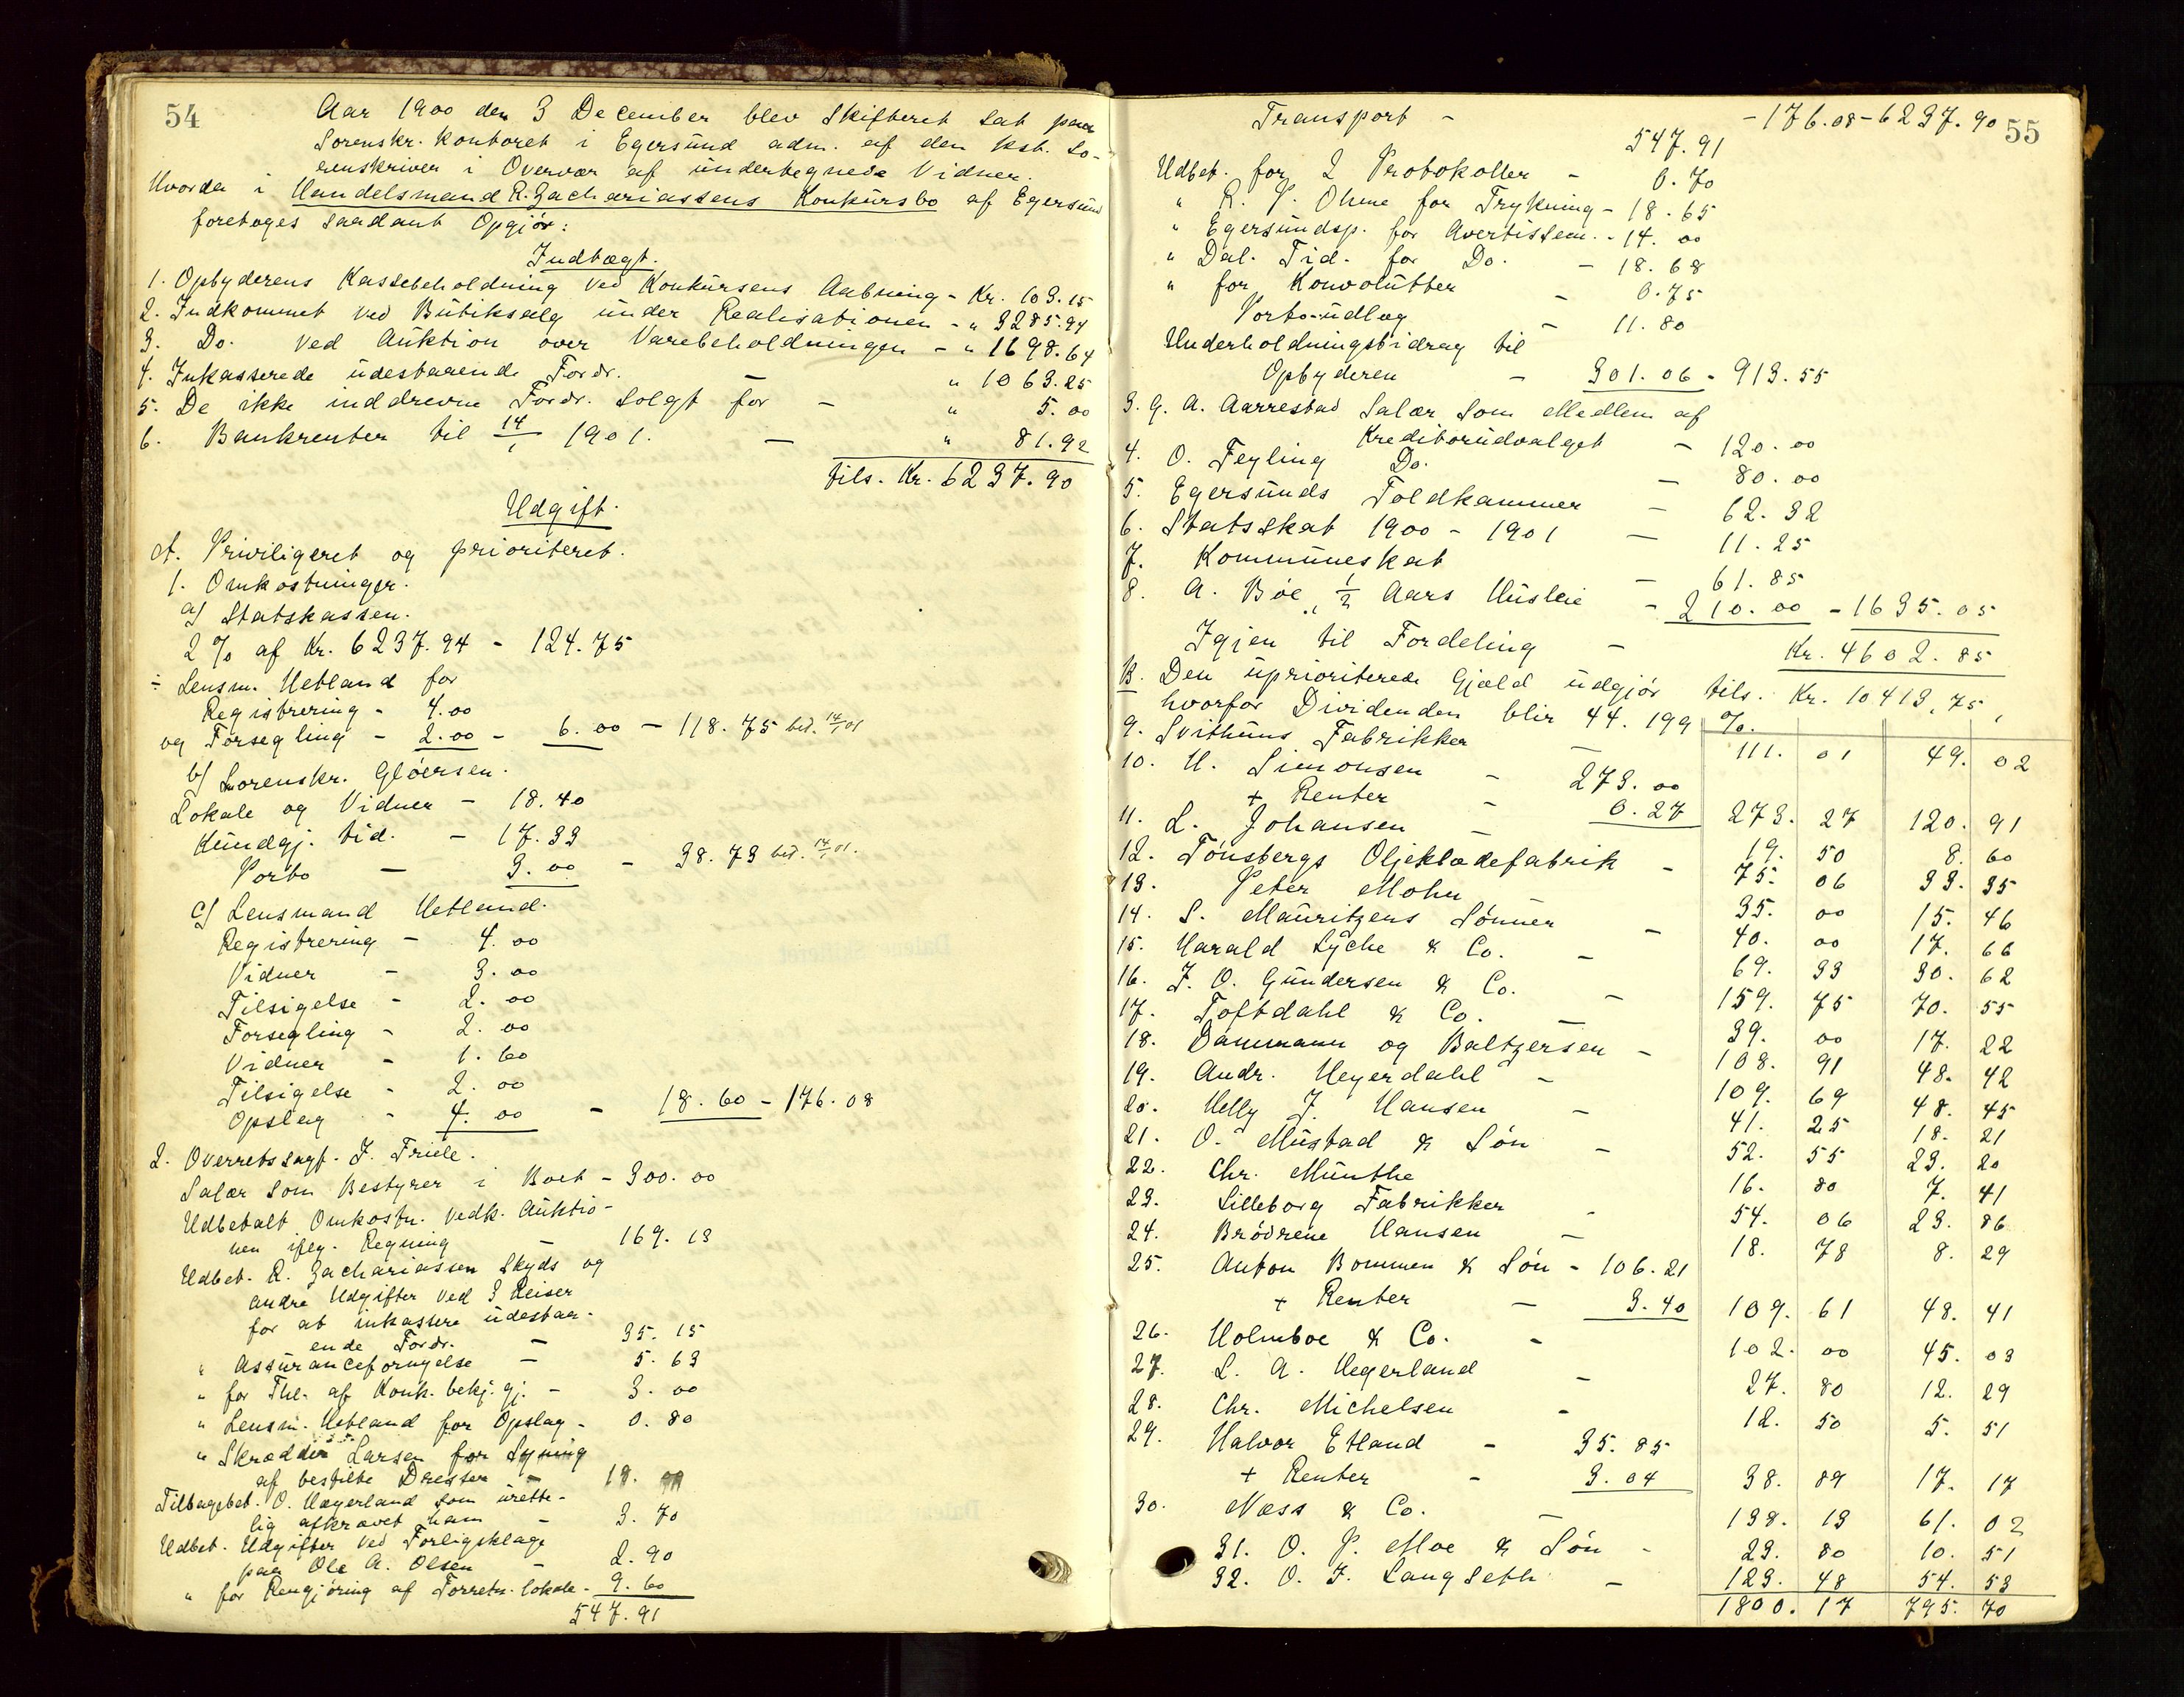 54
Aar 1900 den 3 December blev Skifteret sat paa
Sorenskr. kontoret i Egersund adm. af den kst. So-
renskriver i Overvær af undertegnede Vidner.
Hvorda i Handelsmand R. Zachariassens Konkursbo af Egersund
foretoges saadant Opgjør:
Indtægt.
1. Opbyderens Kassebeholdning ved Konkursens Aabning - Kr. 103.15
2. Indkommet ved Butiksalg under Realisationen - " 3285.94
3. Do. ved Auktion over Varebeholdningen - " 1698.64
4. Inkasserede udestaaende Fordr. - " 1063.25
5. De ikke inddrevne Fordr. solgt for - " 5.00
6. Bankrenter til 14/1 1901. - " 81.92
tils. Kr. 6237.90
Udgift.
A. Priviligeret og prioriteret.
1. Omkostninger.
a) Statskassen.
2 % af Kr. 6237.94 - 124.75
÷ Lensm. Hetland for
Registrering - 4.00
og Forsegling - 2.00 - 6.00 - 118.75 bet. 14/1 01
b) Sorenskr. Gløersen.
Lokale og Vidner - 18.40
Kundgj. tid. - 17.33
Porto - 3.00 - 38.73 bet. 14/1 01.
c) Lensmand Hetland.
Registrering - 4.00
Vidner - 3.00
Tilsigelse - 2.00
Forsegling - 2.00
Vidner - 1.60
Tilsigelse - 2.00
Opslag - 4.00 - 18.60 - 176.08
2. Overretssagf. J. Friele.
Salær som Bestyrer i Boet - 300.00
Udbetalt Omkostn. vedk. Auktio-
nen ifølg. Regning - 169.13
Udbet. R. Zachariassen Skyds og
andre Udgifter ved 3 Reiser
for at inkassere udestaa-
ende Fordr. - 35.15
" Assurancefornyelse - 5.63
" for Thl. af Konk. bekj. gj. - 3.00
" Lensm. Hetland for Opslag - 0.80
" Skrædder Larsen for Syning
af bestilte Dresser - 18.
Tilbagebet. O. Hægerland som urette-
lig afkrævet ham - 3.70
Udbet. Udgifter ved Forligsklage
paa Ole A. Olsen - 2.90
" for Rengjøring af Forretn. lokale - 9.60
547.91
55
Transport - - 176.08 - 6237.90
547.91
Udbet. for 2 Protokoller - 0.70
" R. P. Ohme for Trykning - 18.65
" Egersundsp. for Avertissem. - 14.00
" Dal. Tid. for Do. - 18.68
" for Konvolutter - 0.75
Porto-udlæg - 11.80
Underholdningsbidrag til
Opbyderen - 301.06 - 913.55
3. G. A. Aarrestad Salær som Medlem af
Kreditorudvalget - 120.00
4. O. Feyling Do. - 80.00
5. Egersunds Toldkammer - 62.32
6. Statsskat 1900 - 1901 - 11.25
7. Kommuneskat - 61.85
8. A. Bøe, 1/2 Aars Husleie - 210.00 - 1635.05
Igjen til Fordeling - Kr. 4602.85
B. Den uprioriterede Gjæld udgjør tils. Kr. 10413,75,
hvorfor Dividenden blir 44.199 %.
9. Svithuns Fabrikker - 111. 01 49. 02
10. H. Simonsen - 273.00
+ Renter - 0.27 273. 27 120. 91
11. L. Johansen - 19. 50 8. 60
12. Tønsbergs Oljeklædefabrik - 75. 06 33. 35
13. Peter Mohn 35. 00 15. 46
14. S. Mauritzens Sønner - 40. 00 17. 66
15. Harald Lyche & Co. - 69. 33 30. 62
16. J. O. Gundersen & Co. - 159. 75 70. 55
17. Toftdahl & Co. - 39. 00 17. 22
18. Dammann og Baltzersen - 108. 91 48. 42
19. Andr. Heyerdahl - 109. 69 48. 45
20. Helly J. Hansen - 41. 25 18. 21
21. O. Mustad & Søn - 52. 55 23. 20
22. Chr. Munthe 16. 80 7. 41
23. Lilleborg Fabrikker - 54. 06 23. 86
24. Brødrene Hansen - 18. 78 8. 29
25. Anton Bommen & Søn - 106.21
+ Renter - 3.40 109. 61 48. 41
26. Holmboe & Co. - 102. 00 45. 03
27. L. A. Hegerland - 27. 80 12. 29
28. Chr. Michelsen - 12. 50 5. 51
29. Halvor Etland - 35.85
+ Renter - 3.04 38. 89 17. 17
30. Næss & Co. - 138. 13 61. 02
31. O. P. Moe & Søn - 23. 80 10. 51
32. O. J. Langseth - 123. 48 54. 53
1800. 17 795. 70